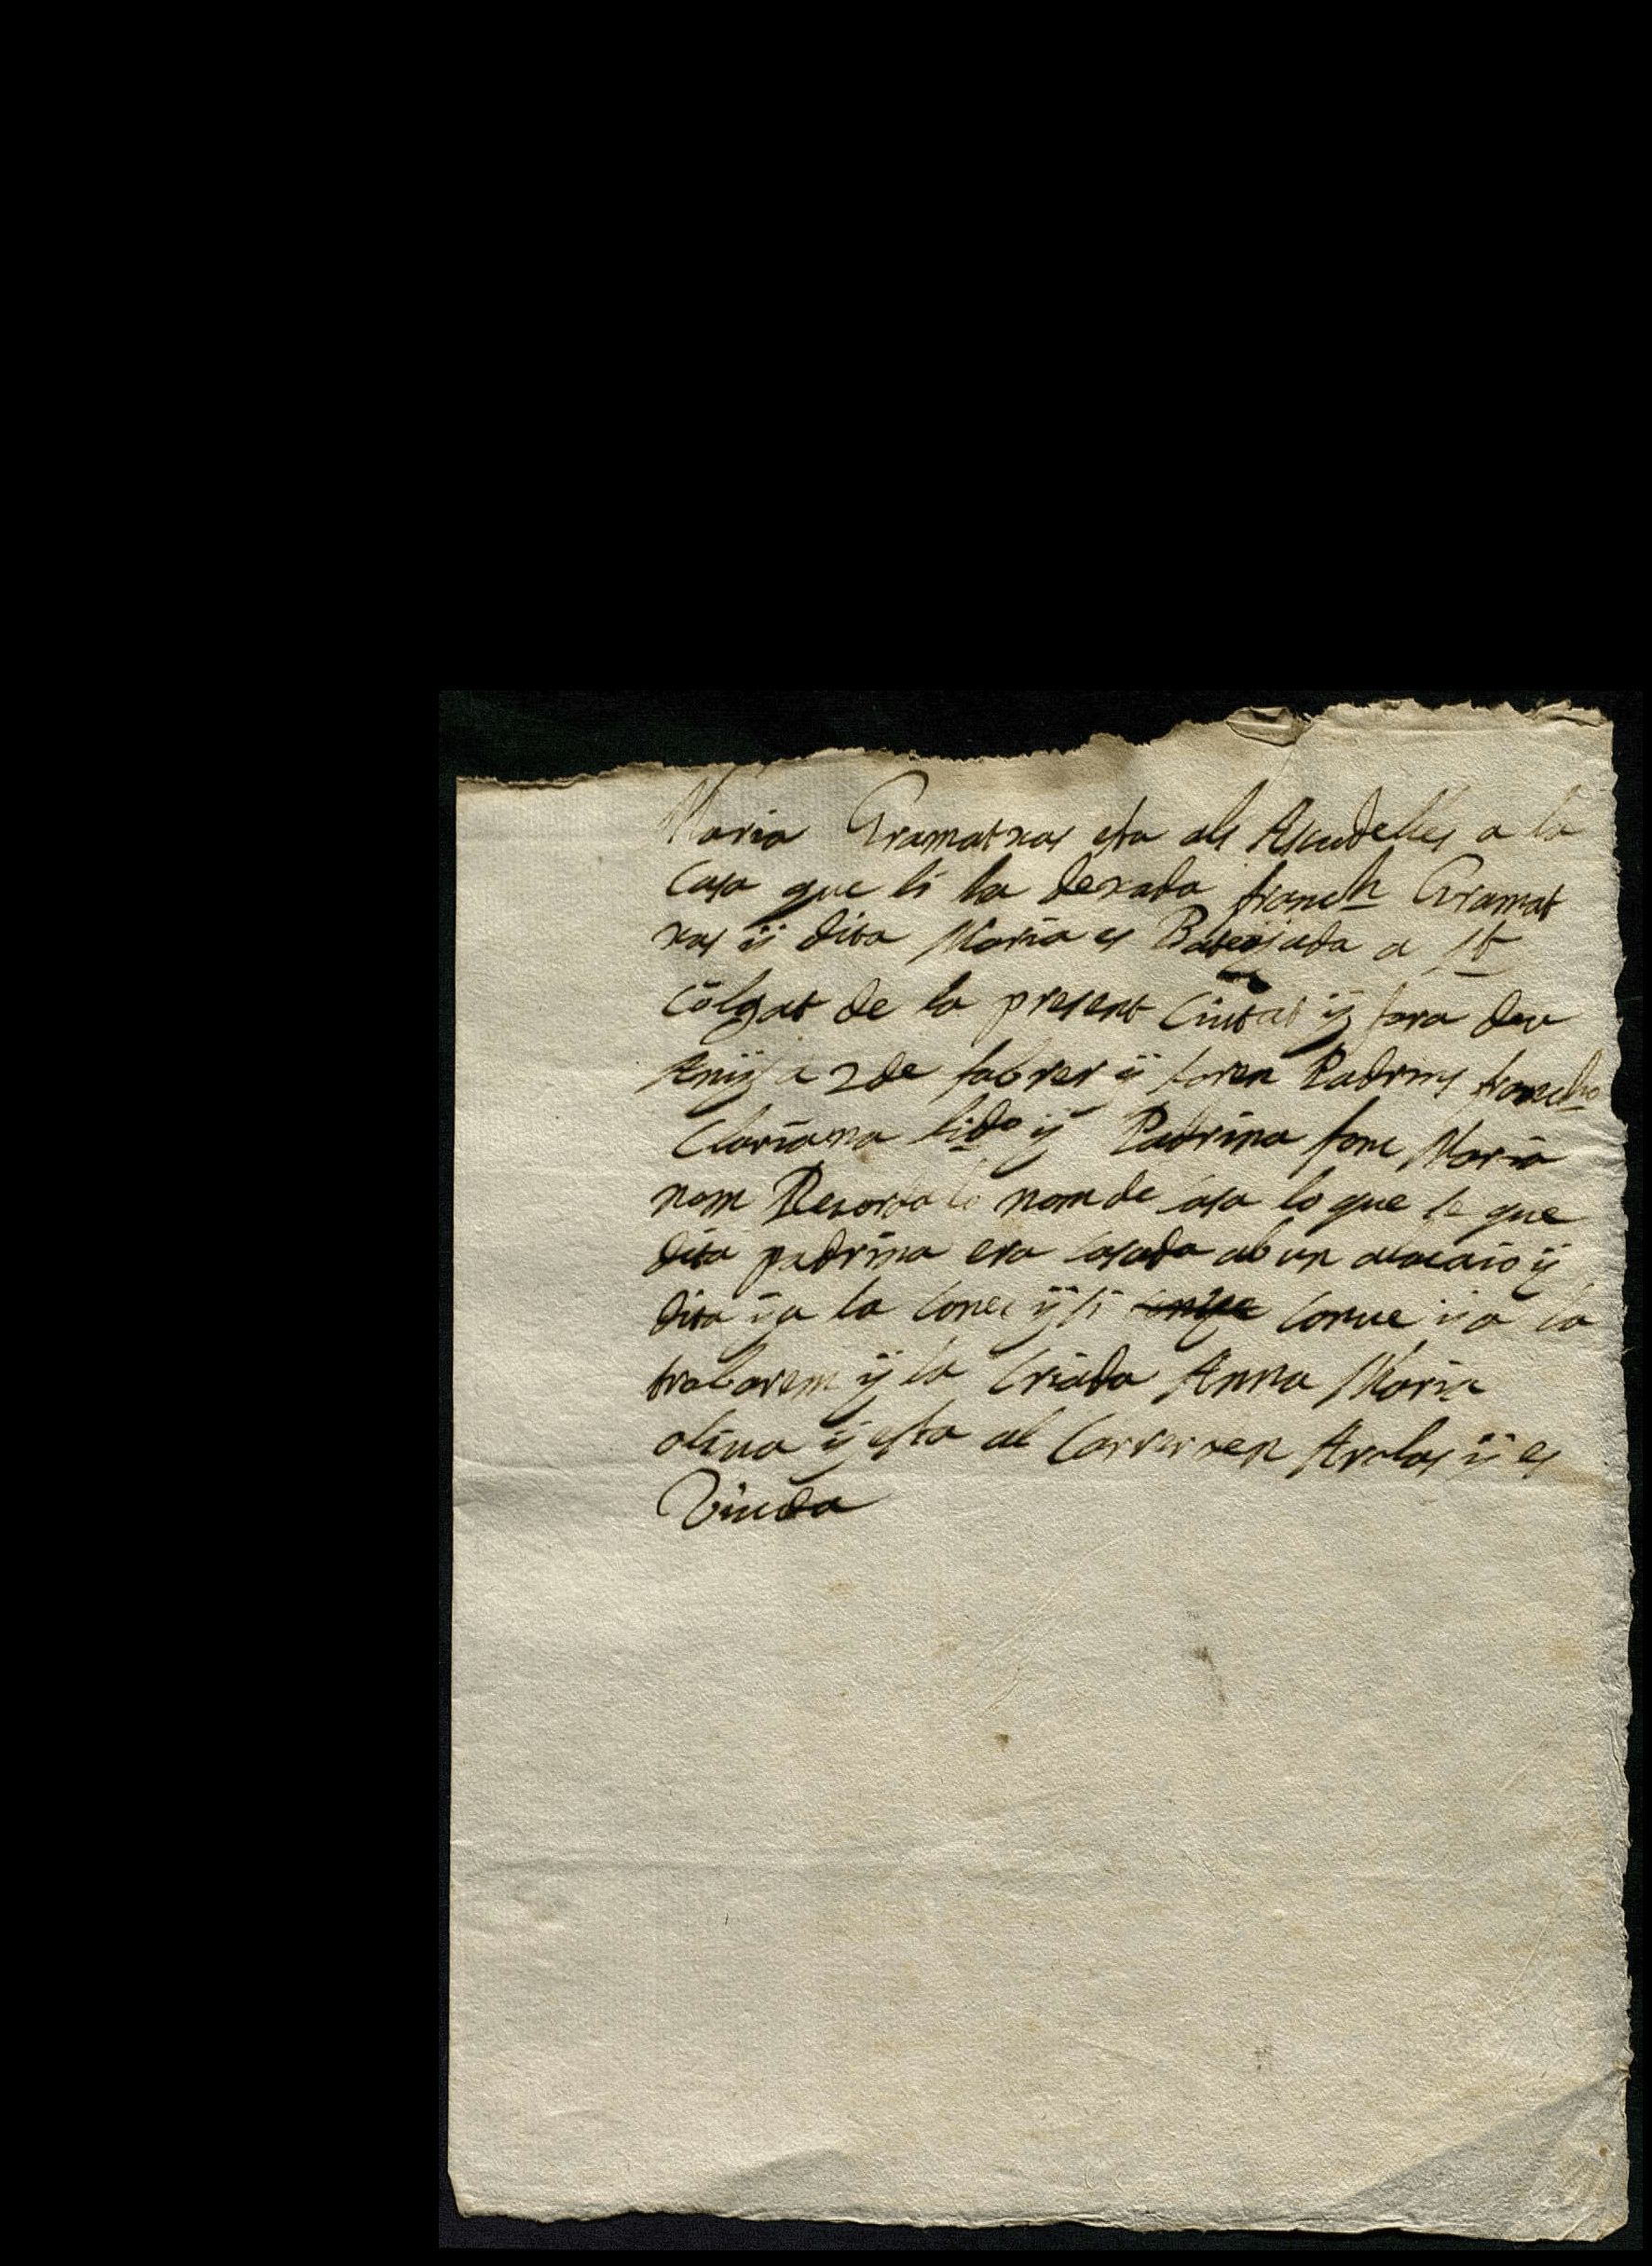 Maria Gramatxas esta als Ascudelles a la
Casa que li ha dexada franch Gramat
xas ÿ dita Maria es Batejada a St
Colgat de la present Ciutat ÿ fara deu
Anÿs a 2 de fabrer ÿ foren Padrins francho
Clariana lido ÿ Padrina fonc Maria
nom Recorda lo nom de casa lo que se que
dita padrina era casada ab un ÿ
dita ÿa la conec ÿ si conve ia la
trabarem ÿ la Criada Anna Maria
oliva ÿ esta al Carrer nen Arolas ÿ es
Viuda